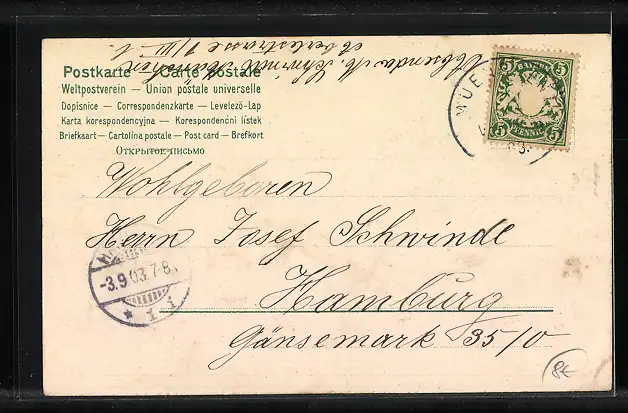 Postkarte — Carte postale
Weltpostverein — Union postale universelle
Dopisnice — Correspondenzkarte — Levelező-Lap
Karta korespondencyjna — Korespondenční lístek
Briefkaart — Cartolina postale — Post card — Brefkort
Открытое письмо
BAYERN
5 5
PFENNIG
5 5
MUE
03.
Wohlgeboren
Herrn Josef Schwindl
Hamburg
Gänsemarkt 35/0
-3.9.03.7-8.
* 1 i
8€